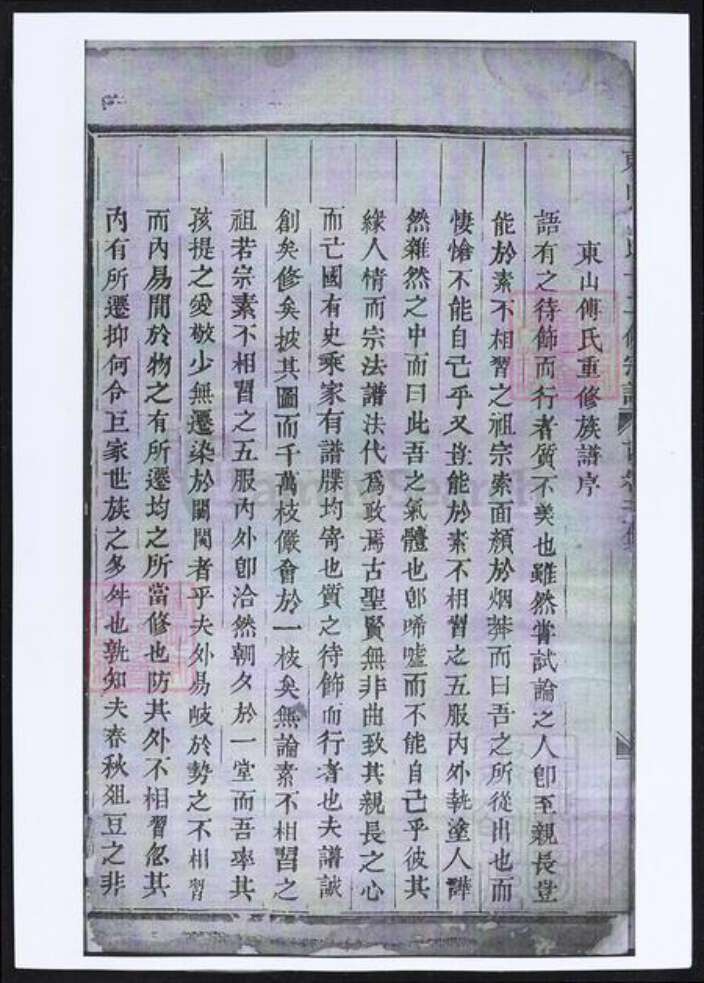 東山傅氏重修族譜序
語有之待飾而行者質不美也雖然嘗試論之人卽至親長豈
能於素不相習之祖宗索面顏於烟莽而曰吾之所從出也而
悽愴不能自己乎又豈能於素不相習之五服內外執塗人譁
然雜然之中而曰此吾之氣體也卽唏噓而不能自己乎彼其
緣人情而宗法譜法代爲政焉古聖賢無非曲致其親長之心
而已國有史乘家有譜牒均寄也質之待飾而行者也夫譜誠
創矣修矣披其圖而千萬枝儼會於一枝矣無論素不相習之
祖若宗素不相習之五服內外卽洽然朝夕於一堂而吾率其
孩提之愛敬少無遷染於鬩閱者乎夫外易岐於勢之不相習
而內易間於物之有所遷均之所當修也防其外不相習忽其
內有所遷抑何令巨家世族之多舛也孰知夫春秋俎豆之非